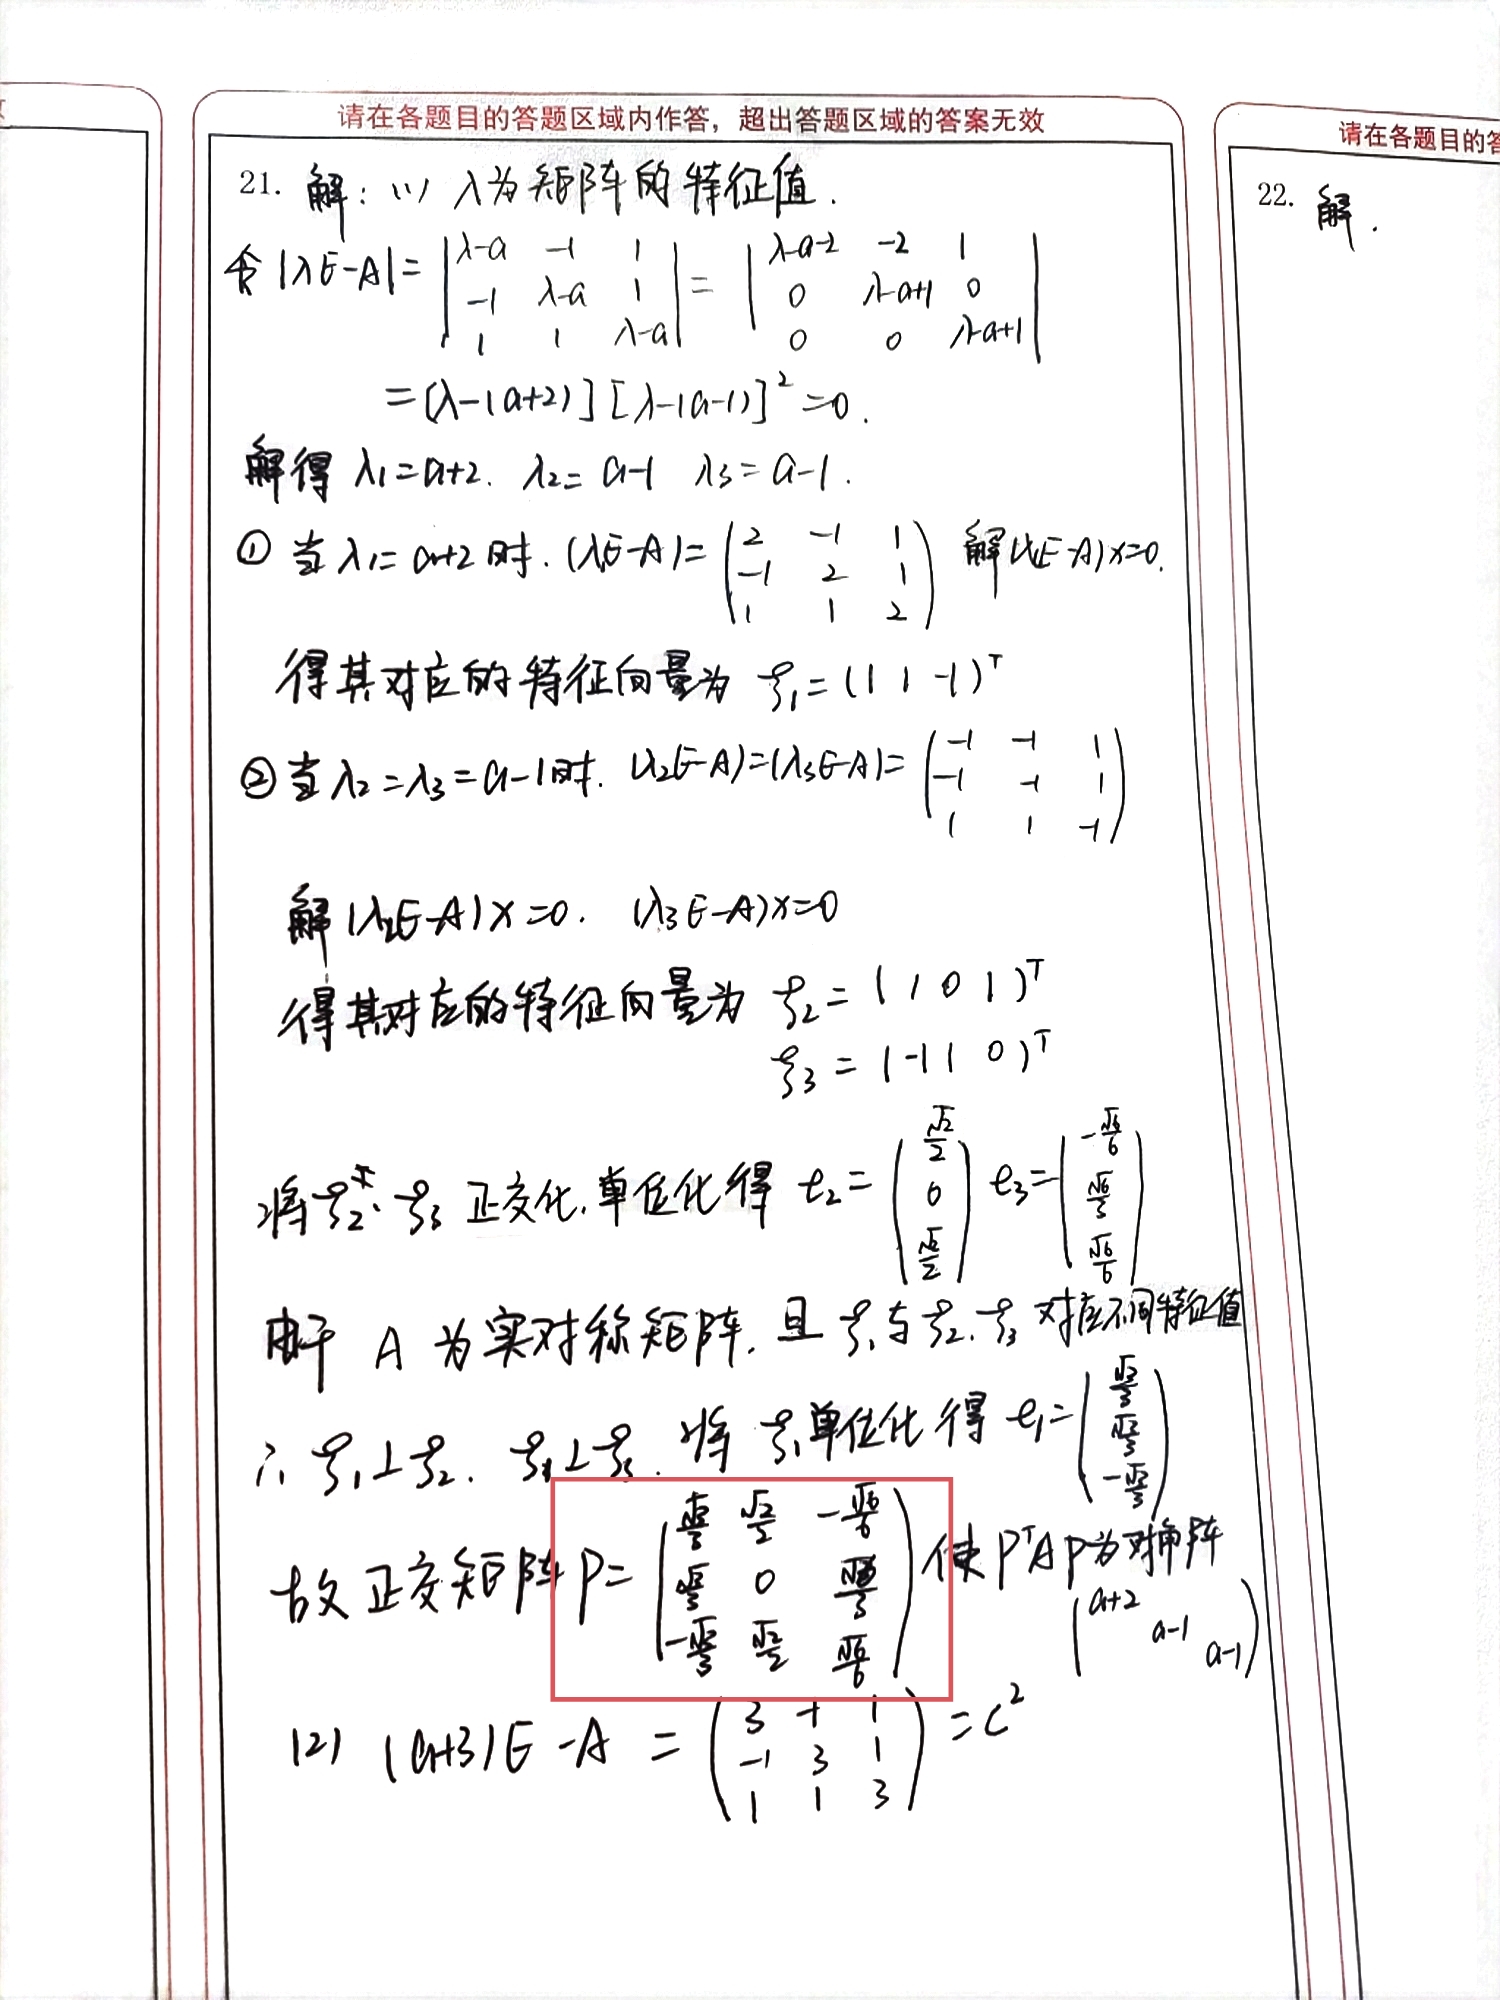 请在各题目的答题区域内作答，超出答题区域的答案无效
21. 解: (1) λ为矩阵的特征值.
令 |λE-A| = | λ-a -1 1 | = | λ-a-2 -2 1 |
| -1 λ-a 1 | | 0 λ-a+1 0 |
| 1 1 λ-a | | 0 0 λ-a+1 |
=[λ-(a+2)][λ-(a-1)]²=0.
解得 λ1=a+2. λ2=a-1 λ3=a-1.
① 当λ1=a+2时. (λ1E-A)= ( 2 -1 1 ) 解(λ1E-A)x=0.
( -1 2 1 )
( 1 1 2 )
得其对应的特征向量为 ξ1=(1 1 -1)ᵀ
② 当λ2=λ3=a-1时. (λ2E-A)=(λ3E-A)= ( -1 -1 1 )
( -1 -1 1 )
( 1 1 -1 )
解(λ2E-A)x=0. (λ3E-A)x=0
得其对应的特征向量为 ξ2=(1 0 1)ᵀ
ξ3=(-1 1 0)ᵀ
将ξ2、ξ3 正交化,单位化得 e2= ( √2/2 ) e3= ( -√6/6 )
( 0 ) ( √6/3 )
( √2/2 ) ( √6/6 )
由于 A 为实对称矩阵. 且 ξ1与ξ2.ξ3对应不同特征值
∴ ξ1⊥ξ2. ξ1⊥ξ3. 将 ξ1单位化得 e1= ( √3/3 )
( √3/3 )
( -√3/3 )
故正交矩阵P= ( √3/3 √2/2 -√6/6 ) 使PᵀAP为对角阵
( √3/3 0 √6/3 ) ( a+2 )
( -√3/3 √2/2 √6/6 ) ( a-1 )
( a-1 )
(2) (a+3)E-A = ( 3 -1 1 ) =C²
( -1 3 1 )
( 1 1 3 )
请在各题目的答
22. 解.